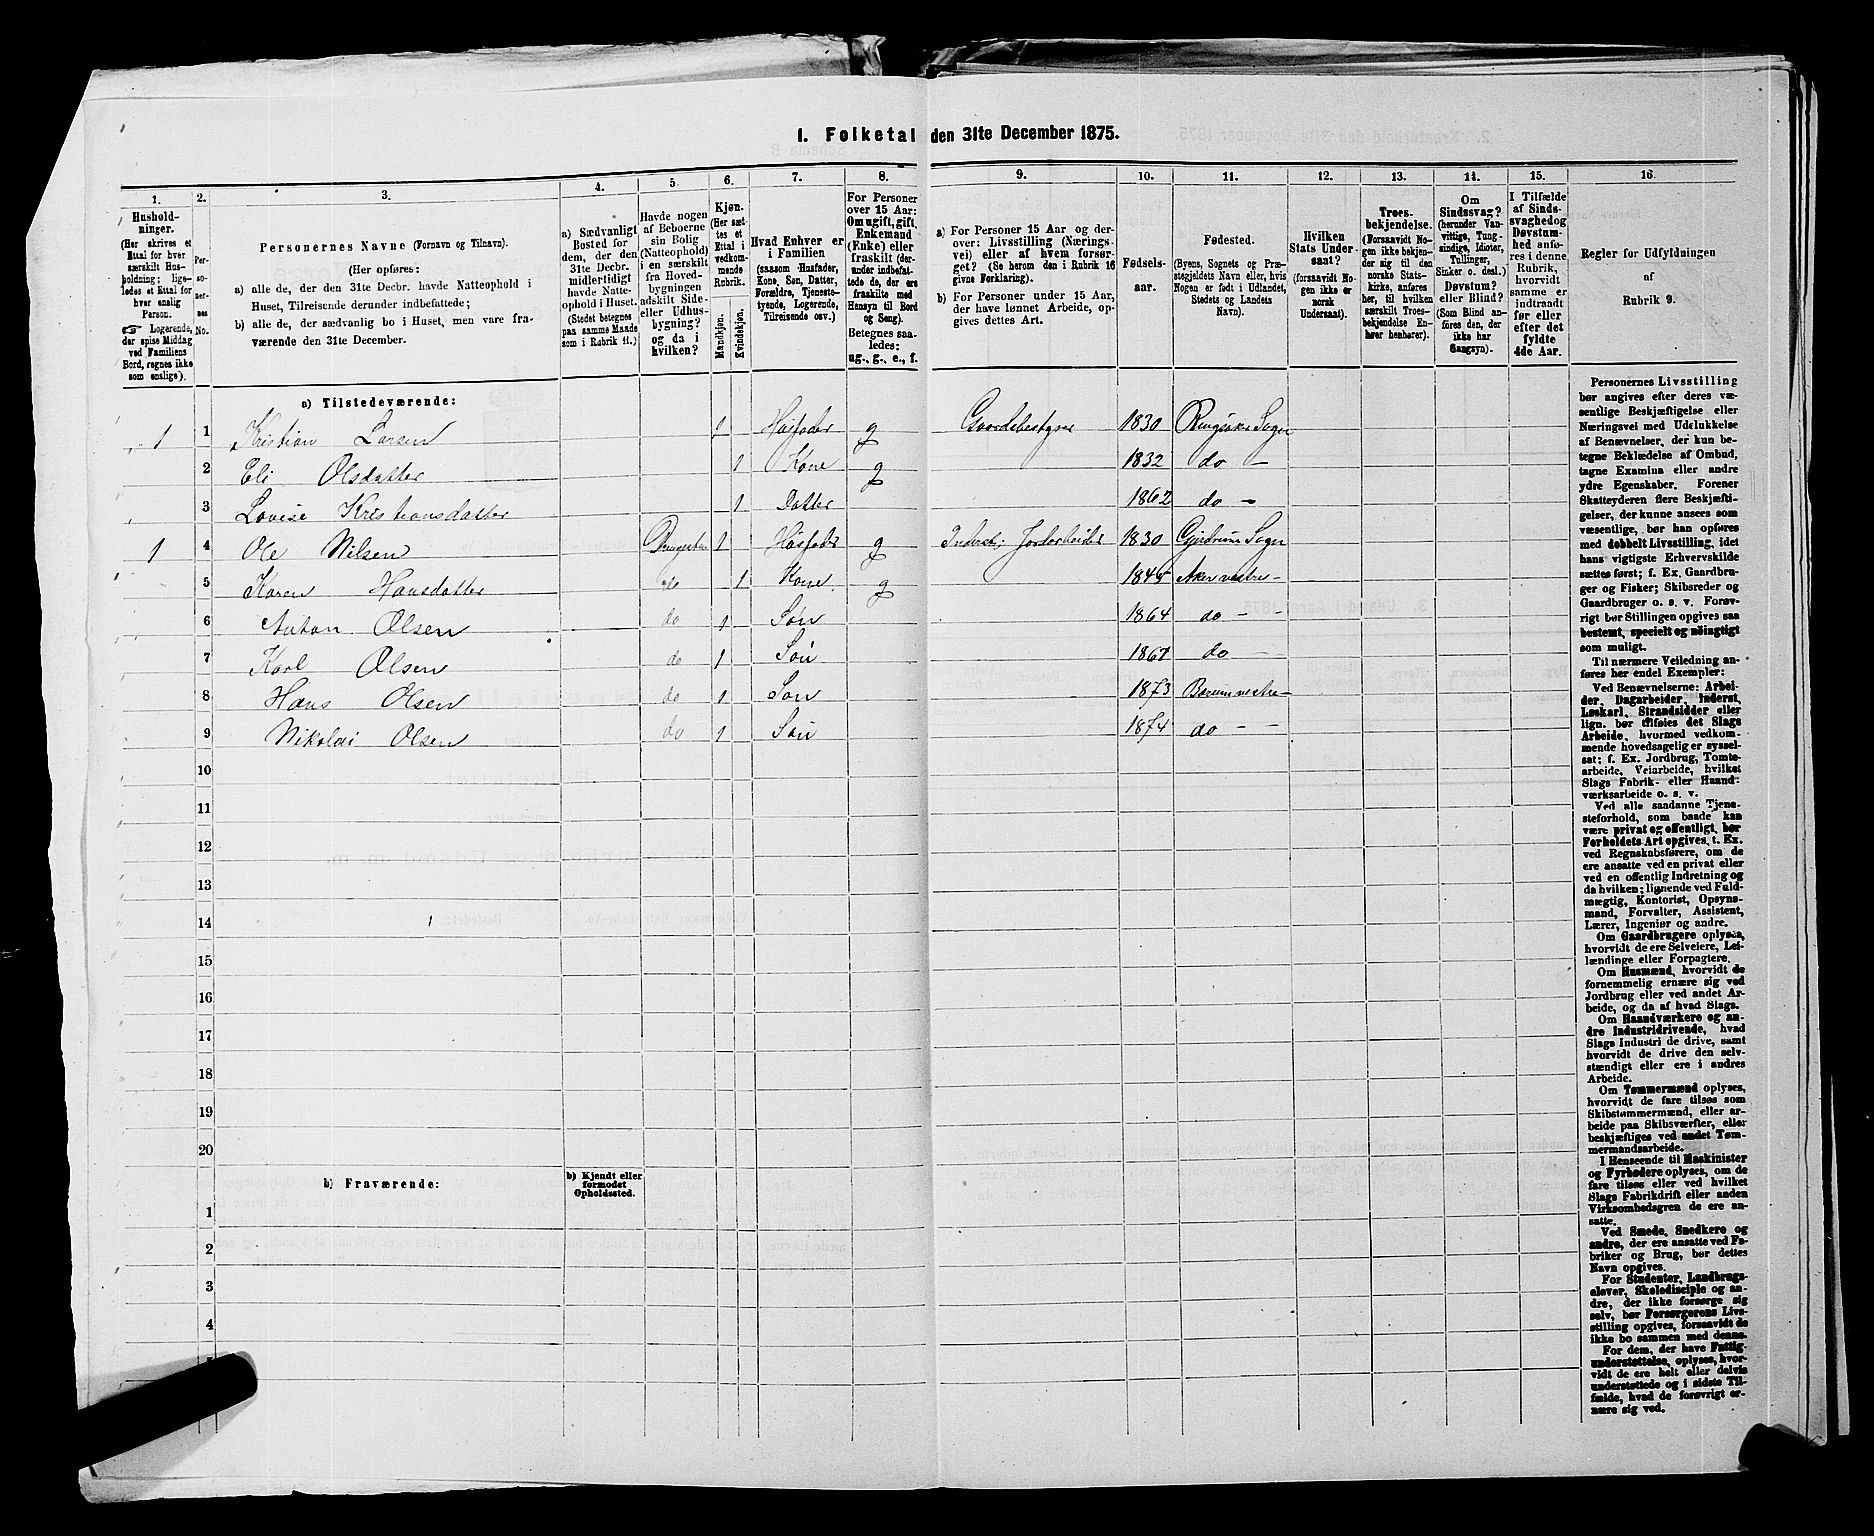 1. Folketal den 31te December 1875.
1. 2. 3. 4. 5. 6. 7. 8. 9. 10. 11. 12. 13. 14. 15. 16.
Husholdninger. (Her skrives et Ettal for hver særskilt Husholdning; ligeledes et Ettal for hver enslig Person. ☞ Logerende, der spise Middag ved Familiens Bord, regnes ikke som enslige).
Personernes No.
Personernes Navne (Fornavn og Tilnavn).
(Her opføres:
a) alle de, der den 31te Decbr. havde Natteophold i Huset, Tilreisende derunder indbefattede;
b) alle de, der sædvanlig bo i Huset, men vare fraværende den 31te December.
a) Sædvanligt Bosted for dem, der den 31te Decbr. midlertidigt havde Natteophold i Huset. (Stedet betegnes paa samme Maade som i Rubrik 11.)
Havde nogen af Beboerne sin Bolig (Natteophold) i en særskilt fra Hovedbygningen adskilt Side- eller Udhusbygning? og da i hvilken?
Kjøn. (Her sættes et Ettal i vedkommende Rubrik. Mandkjøn. Kvindekjøn.
Hvad Enhver er i Familien (saasom Husfader, Kone, Søn, Datter, Forældre, Tjenestetyende, Logerende, Tilreisende osv.)
For Personer over 15 Aar: Om ugift, gift, Enkemand (Enke) eller fraskilt (derunder indbefattede de, der ere fraskilte med Hensyn til Bord og Seng). Betegnes saaledes: ug., g., e., f.
a) For Personer 15 Aar og derover: Livsstilling (Næringsvei) eller af hvem forsørget? (Se herom den i Rubrik 16 givne Forklaring).
b) For Personer under 15 Aar, der have lønnet Arbeide, opgives dettes Art.
Fødselsaar.
Fødested. (Byens, Sognets og Præstegjeldets Navn eller, hvis Nogen er født i Udlandet, Stedets og Landets Navn).
Hvilken Stats Undersaat? (forsaavidt Nogen ikke er norsk Undersaat).
Troesbekjendelse. (Forsaavidt Nogen ikke bekjender sig til den norske Statskirke, anføres her, til hvilken særskilt Troesbekjendelse Enhver henhører).
Om Sindssvag? (herunder Vanvittige, Tungsindige, Idioter, Tullinger, Sinker o. desl.) Døvstum? eller Blind? (Som Blind anføres den, der ikke har Gangsyn).
I Tilfælde af Sindssvaghed og Døvstumhed anføres i denne Rubrik, hvorvidt samme er indtraadt før eller efter det fyldte 4de Aar.
Regler for Udfyldningen af Rubrik 9.
a) Tilstedeværende:
1 1 Kristian Larsen 1 Husfader g Gaardsbestyrer 1830 Ringsaker Sogn
2 Eli Olsdatter 1 Kone g 1832 do -
3 Lovise Kristiansdatter 1 Datter 1862 do -
1 4 Ole Nilsen 1 Husfader g Inderst; Jordarbeider 1830 Gjerdrum Sogn
5 Karen Hansdatter do 1 Kone g 1845 Aker vestre -
6 Anton Olsen do 1 Søn 1864 do - -
7 Karl Olsen do 1 Søn 1867 do -
8 Hans Olsen do 1 Søn 1873 Bærum vestre -
9 Nikolai Olsen do 1 Søn 1874 do - -
10
11
12
13
14
15
16
17
18
19
20
b) Fraværende: b) Kjendt eller formodet Opholdssted.
1
2
3
4
5
Personernes Livsstilling
bør angives efter deres væ-
sentlige Beskjæftigelse eller
Næringsvei med Udelukkelse
af Benævnelser, der kun be-
tegne Beklædelse af Ombud,
tagne Examina eller andre
ydre Egenskaber. Forener
Skatteyderen flere Beskjæfti-
gelser, der kunne ansees som
væsentlige, bør han opføres
med dobbelt Livsstilling, idet
hans vigtigste Erhvervskilde
sættes først; f. Ex. Gaardbru-
ger og Fisker; Skibsreder og
Gaardbruger o. s. v. Forøv-
rigt bør Stillingen opgives saa
bestemt, specielt og nøiagtigt
som muligt.
Til nærmere Veiledning an-
føres her endel Exempler:
Ved Benævnelserne: Arbei-
der, Dagarbeider, Inderst,
Løskarl, Strandsidder eller
lign. bør tilføies det Slags
Arbeide, hvormed vedkom-
mende hovedsagelig er syssel-
sat; f. Ex. Jordbrug, Tomte-
arbeide, Veiarbeide, hvilket
Slags Fabrik- eller Haand-
værksarbeide o. s. v.
Ved alle saadanne Tjene-
steforhold, som baade kan
være privat og offentligt, bør
Forholdets Art opgives, t. Ex.
ved Regnskabsførere, om de
ere ansatte ved en privat eller
ved en offentlig Indretning og
da hvilken; lignende ved Fuld-
mægtig, Kontorist, Opsyns-
mand, Forvalter, Assistent,
Lærer, Ingeniør og andre.
Om Gaardbrugere oplyses,
hvorvidt de ere Selveiere, Lei-
lændinge eller Forpagtere.
Om Husmænd, hvorvidt de
fornemmelig ernære sig ved
Jordbrug eller ved andet Ar-
beide, og da af hvad Slags.
Om Haandværkere og an-
dre Industridrivende, hvad
Slags Industri de drive, samt
hvorvidt de drive den selv-
stændigt eller ere i andres
Arbeide.
Om Tømmermænd oplyses,
hvorvidt de fare tilsøs som
Skibstømmermænd, eller ar-
beide paa Skibsværfter, eller
beskjæftiges ved andet Tøm-
mermandsarbeide.
I Henseende til Maskinister
og Fyrbødere oplyses, om de
fare tilsøs eller ved hvilket
Slags Fabrikdrift eller anden
Virksomhedsgren de ere an-
satte.
Ved Smede, Snedkere og
andre, der ere ansatte ved Fa-
briker og Brug, bør dettes
Navn opgives.
For Studenter, Landbrugs-
elever, Skoledisciple og an-
dre, der ikke forsørge sig
selv, bør Forsørgerens Livs-
stilling opgives, forsaavidt de
ikke bo sammen med denne.
For dem, der have Fattig-
understøttelse, oplyses, hvor-
vidt de ere helt eller delvis
understøttede og i sidste Til-
fælde, hvad de forøvrigt er-
nære sig ved.